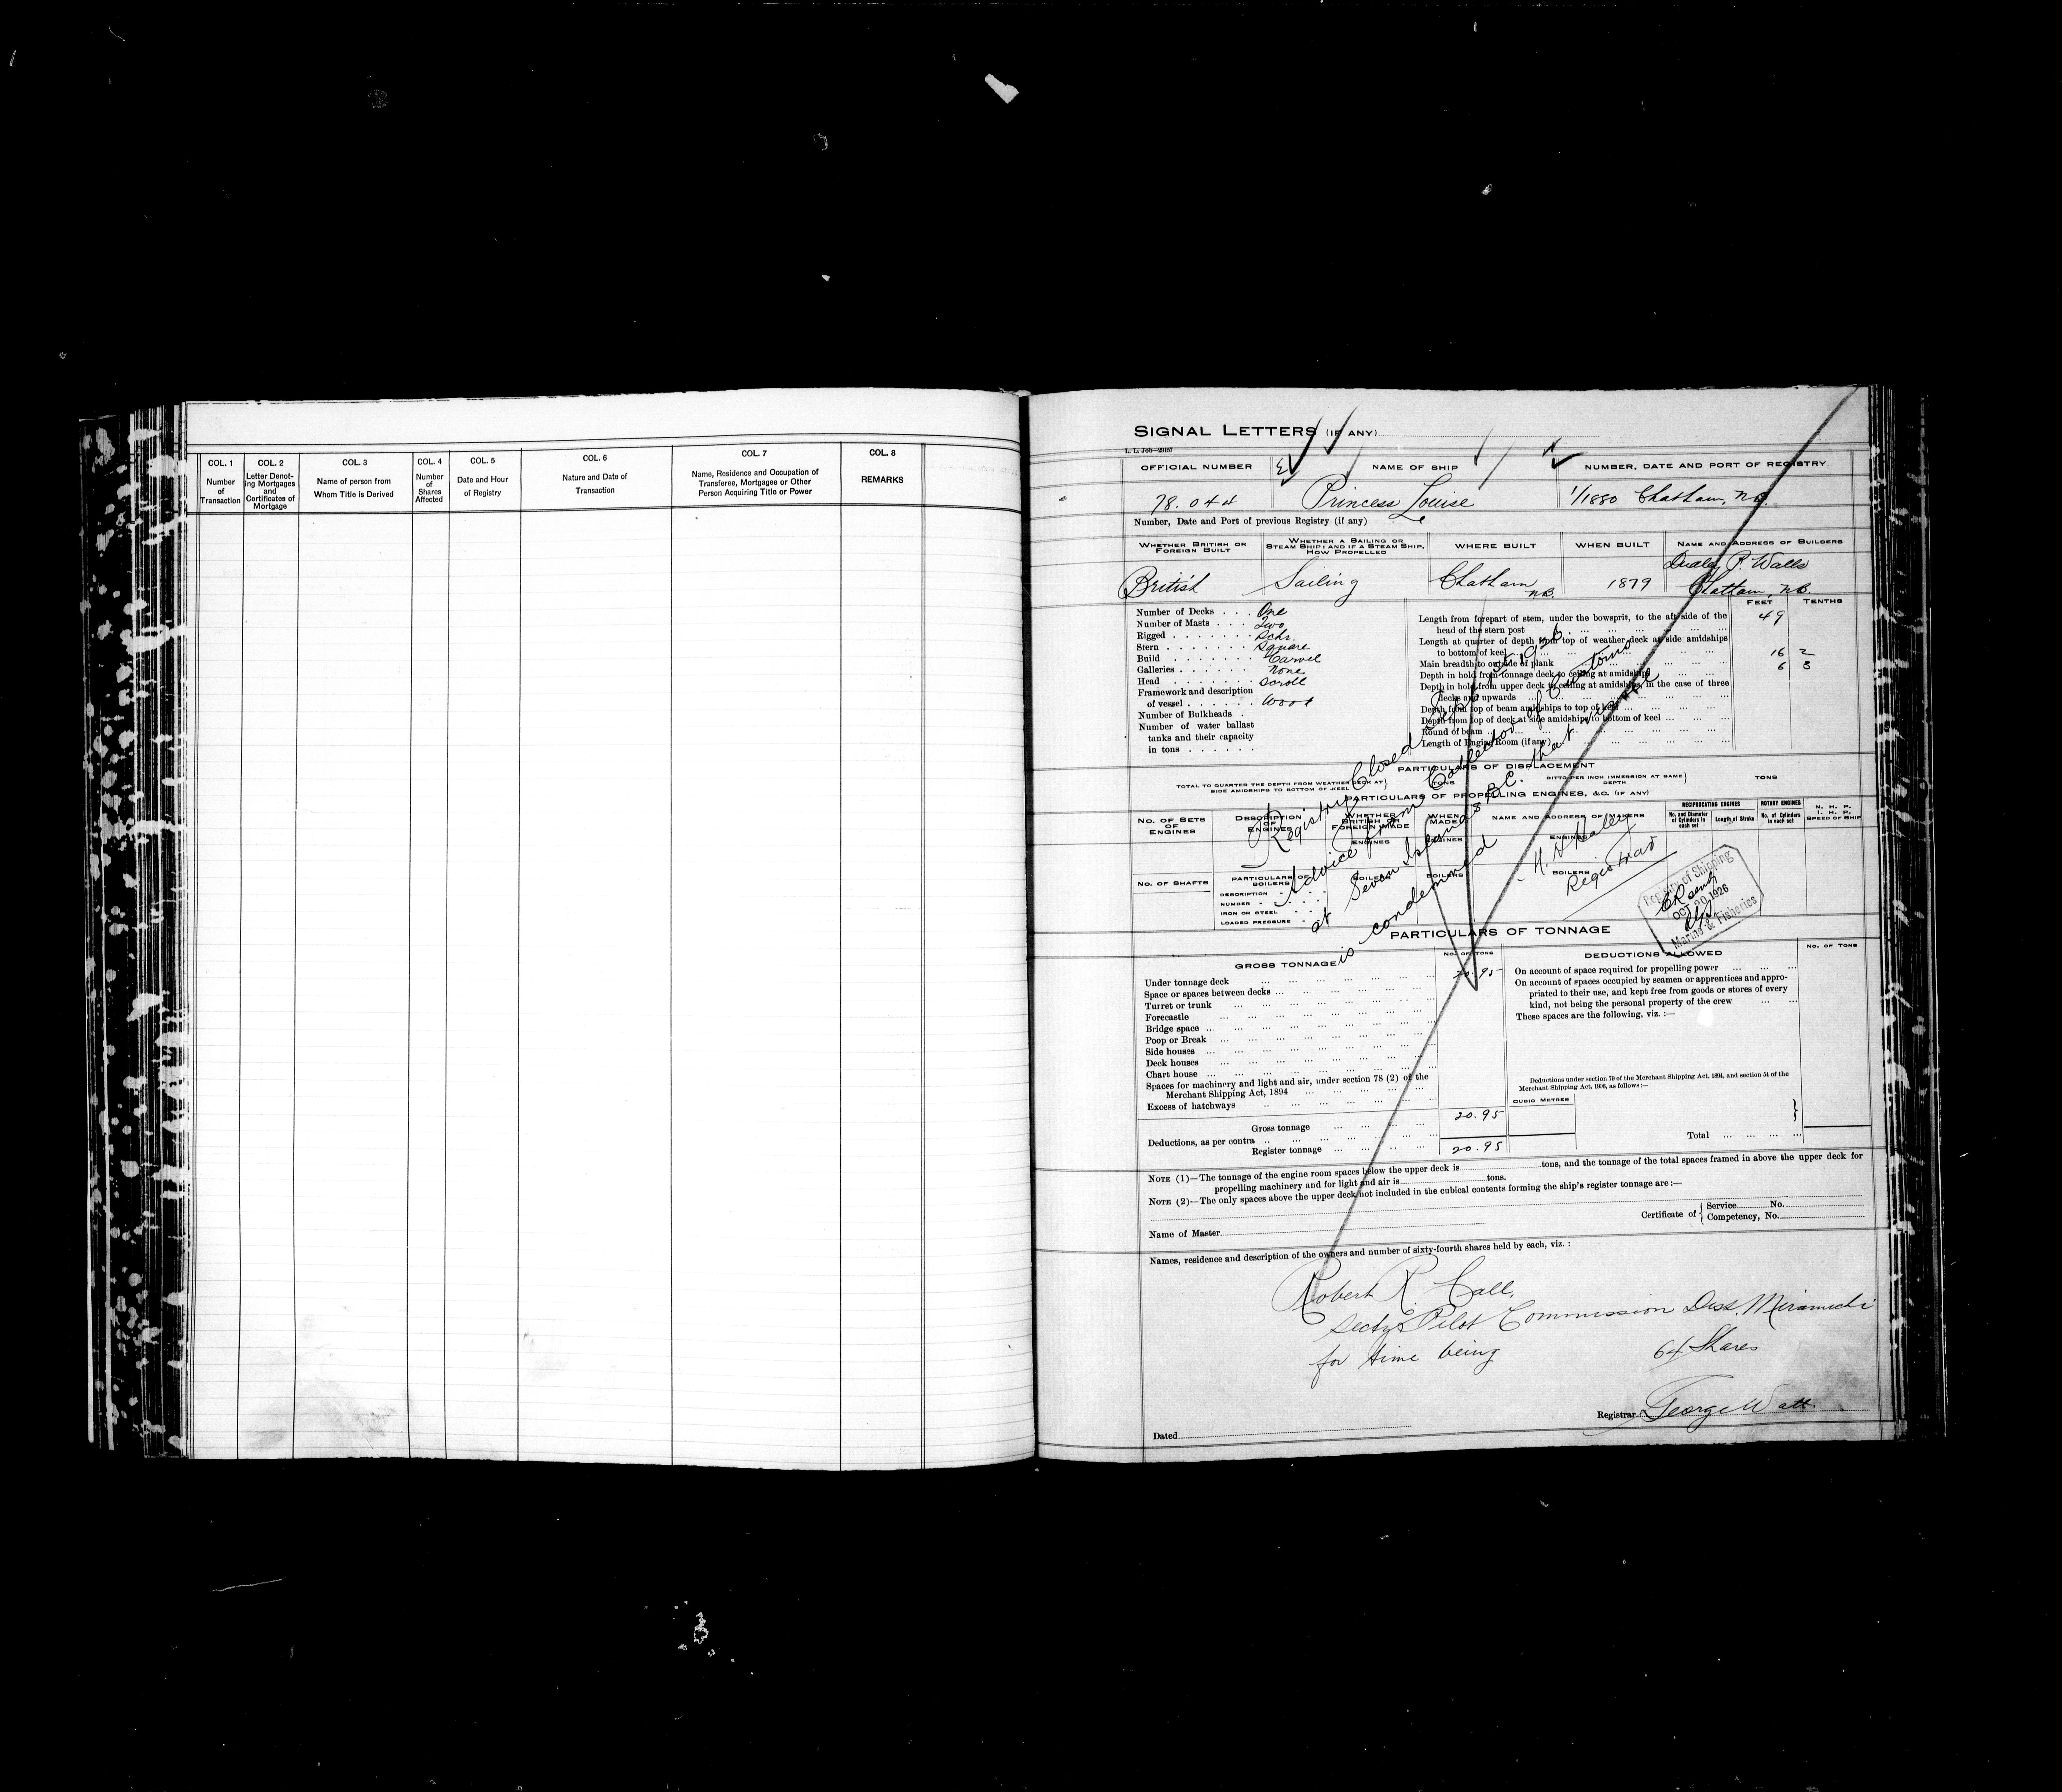 COL. 1
Number
of
Transaction
COL. 2
Letter Denot-
ing Mortgages
and
Certificates of
Mortgage
COL. 3
Name of person from
Whom Title is Derived
COL. 4
Number
of
Shares
Affected
COL. 5
Date and Hour
of Registry
COL. 6
Nature and Date of
Transaction
COL. 7
Name, Residence and Occupation of
Transferee, Mortgagee or Other
Person Acquiring Title or Power
COL. 8
REMARKS
SIGNAL LETTERS (IF ANY)
L. L. Job—29457
OFFICIAL NUMBER
NAME OF SHIP
NUMBER, DATE AND PORT OF REGISTRY
78.044
Princess Louise
1/1880 Chatham, N.B.
Number, Date and Port of previous Registry (if any)
WHETHER BRITISH OR
FOREIGN BUILT
WHETHER A SAILING OR
STEAM SHIP; AND IF A STEAM SHIP,
HOW PROPELLED
WHERE BUILT
WHEN BUILT
NAME AND ADDRESS OF BUILDERS
British
Sailing
Chatham
N.B.
1879
P. Walls
Chatham, N.B.
FEET TENTHS
Number of Decks . . . One
Number of Masts . . . Two
Rigged . . . . . . . Schr.
Stern . . . . . . . . Square
Build . . . . . . . . Carvel
Galleries . . . . . . None
Head . . . . . . . . Scroll
Framework and description
of vessel . . . . . . Wood
Number of Bulkheads .
Number of water ballast
tanks and their capacity
in tons . . . . . .
Length from forepart of stem, under the bowsprit, to the aft side of the
head of the stern post 49
Length at quarter of depth from top of weather deck at side amidships
to bottom of keel
Main breadth to outside of plank 16 2
Depth in hold from tonnage deck to ceiling at amidships 6 3
Depth in hold from upper deck to ceiling at amidships, in the case of three
decks and upwards
Depth from top of beam amidships to top of keel
Depth from top of deck at side amidships to bottom of keel
Round of beam
Length of Engine Room (if any)
PARTICULARS OF DISPLACEMENT
TOTAL TO QUARTER THE DEPTH FROM WEATHER DECK AT
SIDE AMIDSHIPS TO BOTTOM OF KEEL
TONS
DITTO PER INCH IMMERSION AT SAME
DEPTH
TONS
PARTICULARS OF PROPELLING ENGINES, &C. (IF ANY)
NO. OF SETS
OF
ENGINES
DESCRIPTION
OF
ENGINES
WHETHER
BRITISH OR
FOREIGN MADE
WHEN
MADE
NAME AND ADDRESS OF MAKERS
RECIPROCATING ENGINES
No. and Diameter
of Cylinders in
each set
Length of Stroke
ROTARY ENGINES
No. of Cylinders
in each set
N. H. P.
I. H. P.
SPEED OF SHIP
ENGINES
ENGINES
ENGINES
NO. OF SHAFTS
PARTICULARS OF
BOILERS
BOILERS
BOILERS
BOILERS
DESCRIPTION
NUMBER
IRON OR STEEL
LOADED PRESSURE
Registry Closed Sept 1926.
Advice from Collector of Customs
at Seven Islands that vessel
is condemned
Registrar
Register of Shipping
OCT 20 1926
Marine & Fisheries
PARTICULARS OF TONNAGE
GROSS TONNAGE
NO. OF TONS
DEDUCTIONS ALLOWED
NO. OF TONS
Under tonnage deck 20.95
Space or spaces between decks
Turret or trunk
Forecastle
Bridge space
Poop or Break
Side houses
Deck houses
Chart house
Spaces for machinery and light and air, under section 78 (2) of the
Merchant Shipping Act, 1894
Excess of hatchways
Gross tonnage 20.95
Deductions, as per contra
Register tonnage 20.95
On account of space required for propelling power
On account of spaces occupied by seamen or apprentices and appro-
priated to their use, and kept free from goods or stores of every
kind, not being the personal property of the crew
These spaces are the following, viz. :—
Deductions under section 79 of the Merchant Shipping Act, 1894, and section 54 of the
Merchant Shipping Act, 1906, as follows :—
CUBIC METRES
Total
NOTE (1)—The tonnage of the engine room spaces below the upper deck is tons, and the tonnage of the total spaces framed in above the upper deck for
propelling machinery and for light and air is tons.
NOTE (2)—The only spaces above the upper deck not included in the cubical contents forming the ship's register tonnage are :—
Name of Master
Certificate of { Service No.
Competency, No.
Names, residence and description of the owners and number of sixty-fourth shares held by each, viz. :
Robert R. Call,
Secty Pilot Commission Dist. Miramichi
for time being 64 Shares
Registrar George Watt
Dated